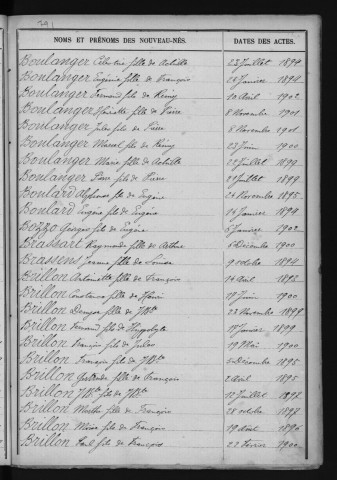 291
NOMS ET PRÉNOMS DES NOUVEAU-NÉS. DATES DES ACTES.
Boulanger Célestine fille de Achille 23 Juillet 1894
Boulanger Eugénie fille de François 20 Janvier 1894
Boulanger Fernand fils de Rémy 10 Août 1902
Boulanger Henriette fille de Pierre 8 Novembre 1901
Boulanger Jules fils de Pierre 8 Novembre 1901
Boulanger Marcel fils de Rémy 23 Juin 1900
Boulanger Marie fille de Achille Juillet 1899
Boulanger fils de Pierre Juillet 1899
Boulard Alphonse fils de Eugène 24 Novembre 1895
Boulard Eugène fils de Eugène 16 Janvier 1894
Bozzo Georges fils de Eugène 5 Janvier 1902
Brassart Raymonde fille de Arthur 6 Décembre 1900
Brassens Jeanne fille de Louise 9 octobre 1894
Brillon Antoinette fille de François 14 Août 1897
Brillon Constance fille de Henri 18 Juin 1900
Brillon fille de J. Bte 23 Novembre 1899
Brillon Fernand fils de Hippolyte 18 Janvier 1899
Brillon François fils de Jules 19 Mai 1900
Brillon François fils de J. Bte Décembre 1895
Brillon Gertrude fille de François 2 Août 1895
Brillon J. Bte fils de J. Bte 12 Juillet 1897
Brillon Marthe fille de François 28 octobre 1897
Brillon fils de François 19 Août 1896
Brillon Paul fils de François 22 Février 1900